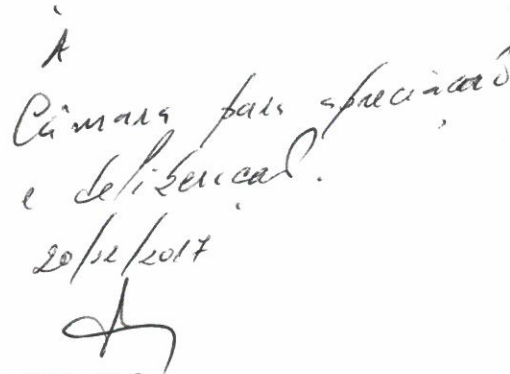 À
Câmara para apreciação
e deliberação.
20/12/2017